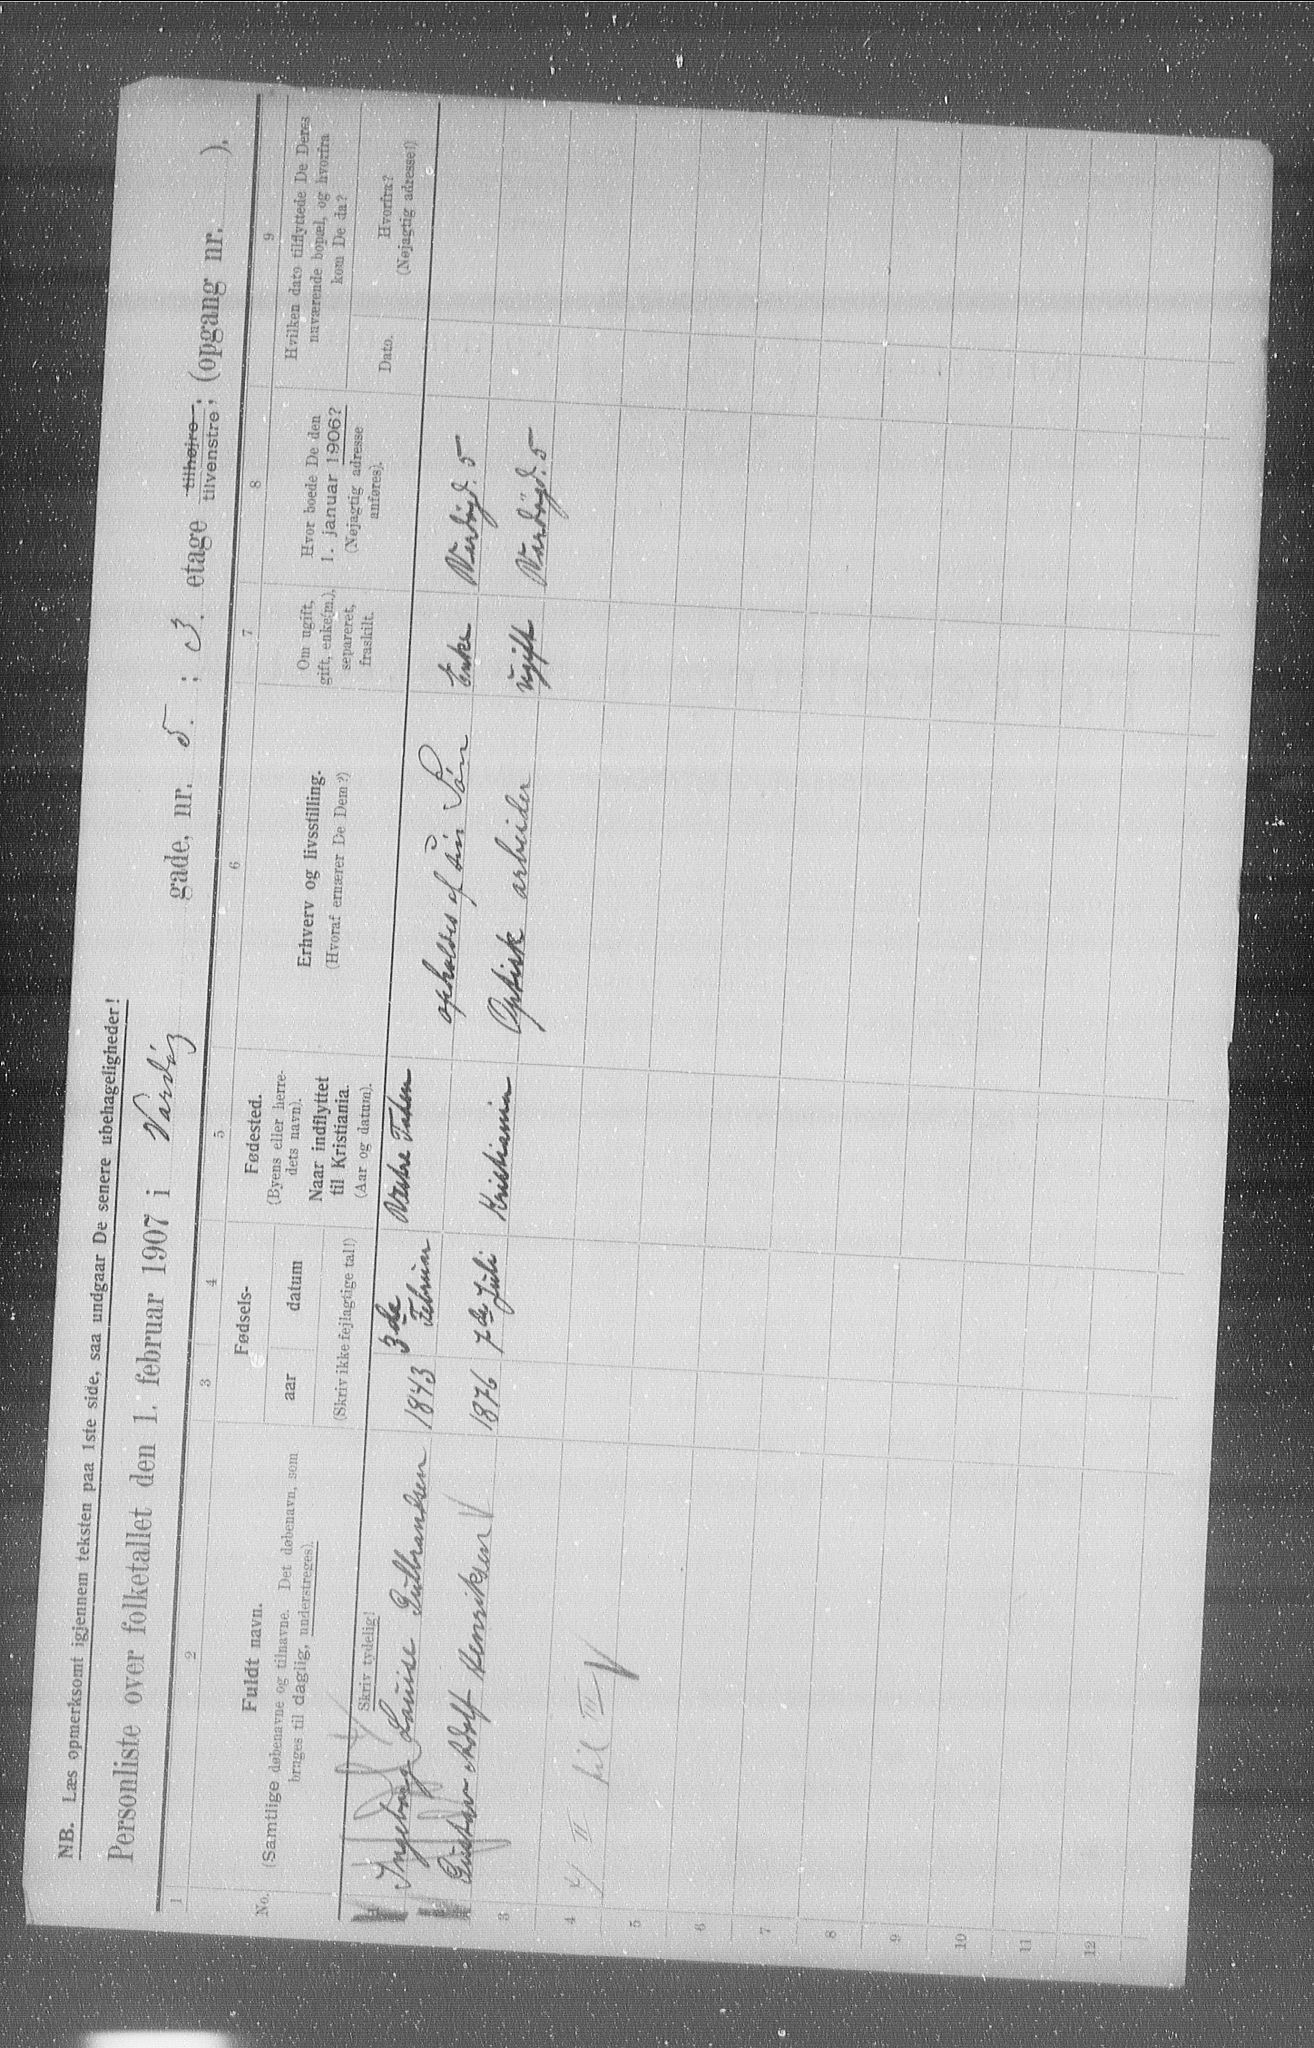 NB. Læs opmerksomt igjennem teksten paa 1ste side, saa undgaar De senere ubehageligheder!
Personliste over folketallet den 1. februar 1907 i Vardög gade, nr. 5. ; 3. etage tilhøjre, tilvenstre; (opgang nr. ).
1 2 3 4 5 6 7 8 9
No.
Fuldt navn.
(Samtlige døbenavne og tilnavne. Det døbenavn, som
bruges til daglig, understreges).
Skriv tydelig!
Fødsels-
aar datum
(Skriv ikke fejlagtige tal!)
Fødested.
(Byens eller herre-
dets navn).
Naar indflyttet
til Kristiania.
(Aar og datum).
Erhverv og livsstilling.
(Hvoraf ernærer De Dem?)
Om ugift,
gift, enke(m.),
separeret,
fraskilt.
Hvor boede De den
1. januar 1906?
(Nøjagtig adresse
anføres).
Hvilken dato tilflyttede De Deres
nuværende bopæl, og hvorfra
kom De da?
Dato.
Hvorfra?
(Nøjagtig adresse!)
Ingeborg Lauise Gulbrandsen 1843 3de Februar Vestre opholdes af sin Sön Enke Vardögd. 5
Gustav Adolf Henriksen 1876 7de Juli Kristiania Optisk arbeider ugift Vardögd. 5
3
4 II til III
5
6
7
8
9
10
11
12